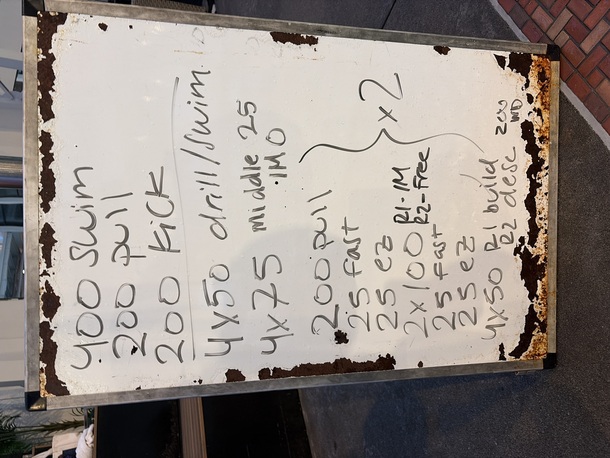 400 swim
200 pull
200 kick
4x50 drill/swim
4x75 middle 25
IMO
200 pull
25 fast
25 ez
x2
2x100 R1-IM
R2-Free
25 fast
25 ez
4x50 R1 build
R2 desc
200
WD